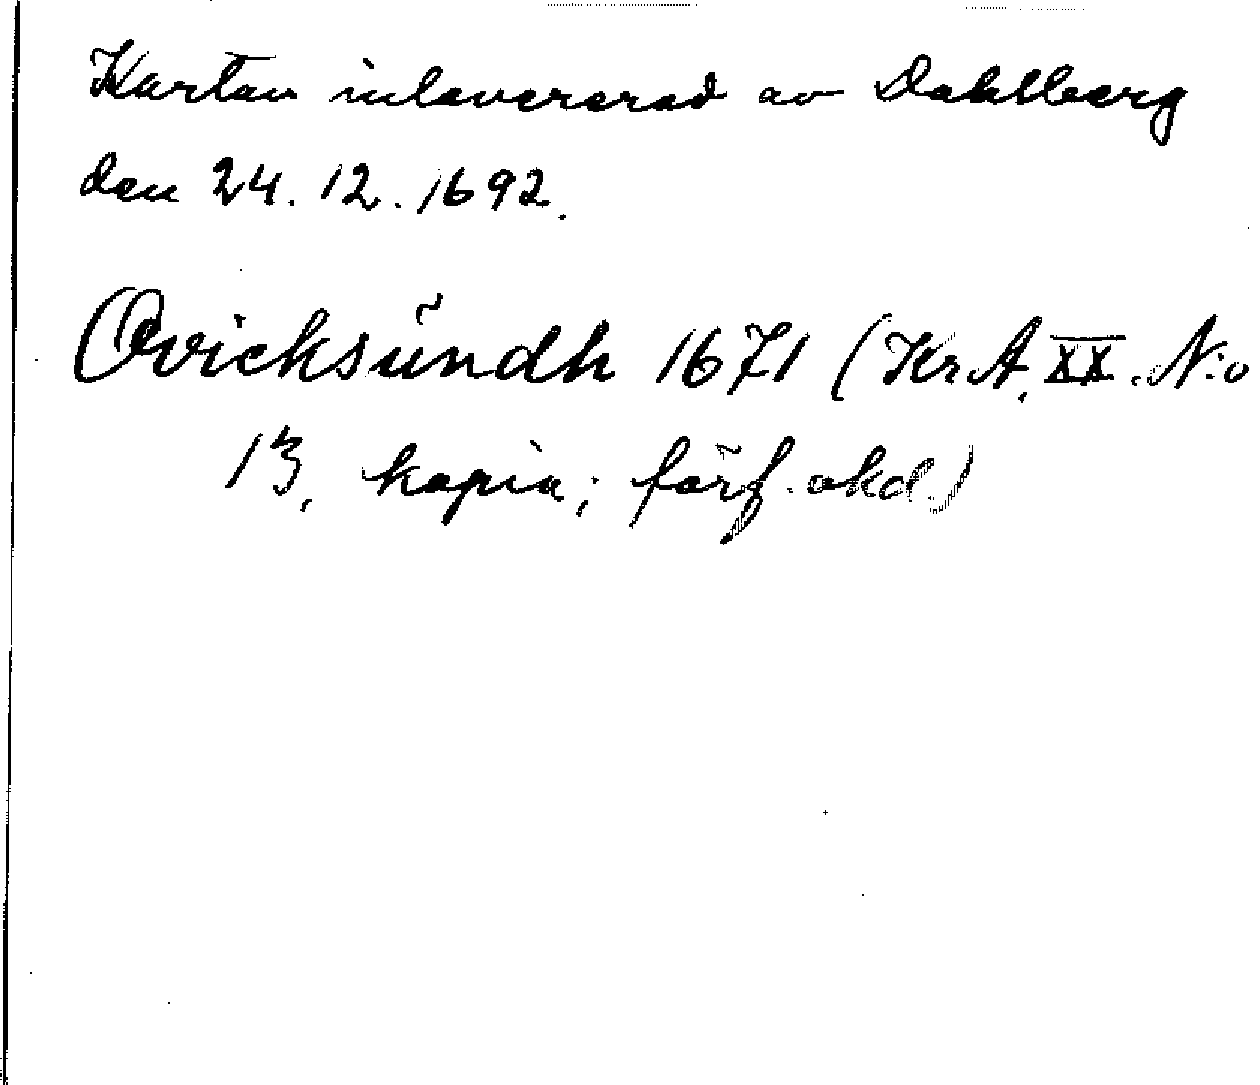 Kartan inlevererad av Dahlberg
den 24.12.1692.
Qvicksündh 1671 (KrA, XX. N:o
13, kopia; förf. okd.)